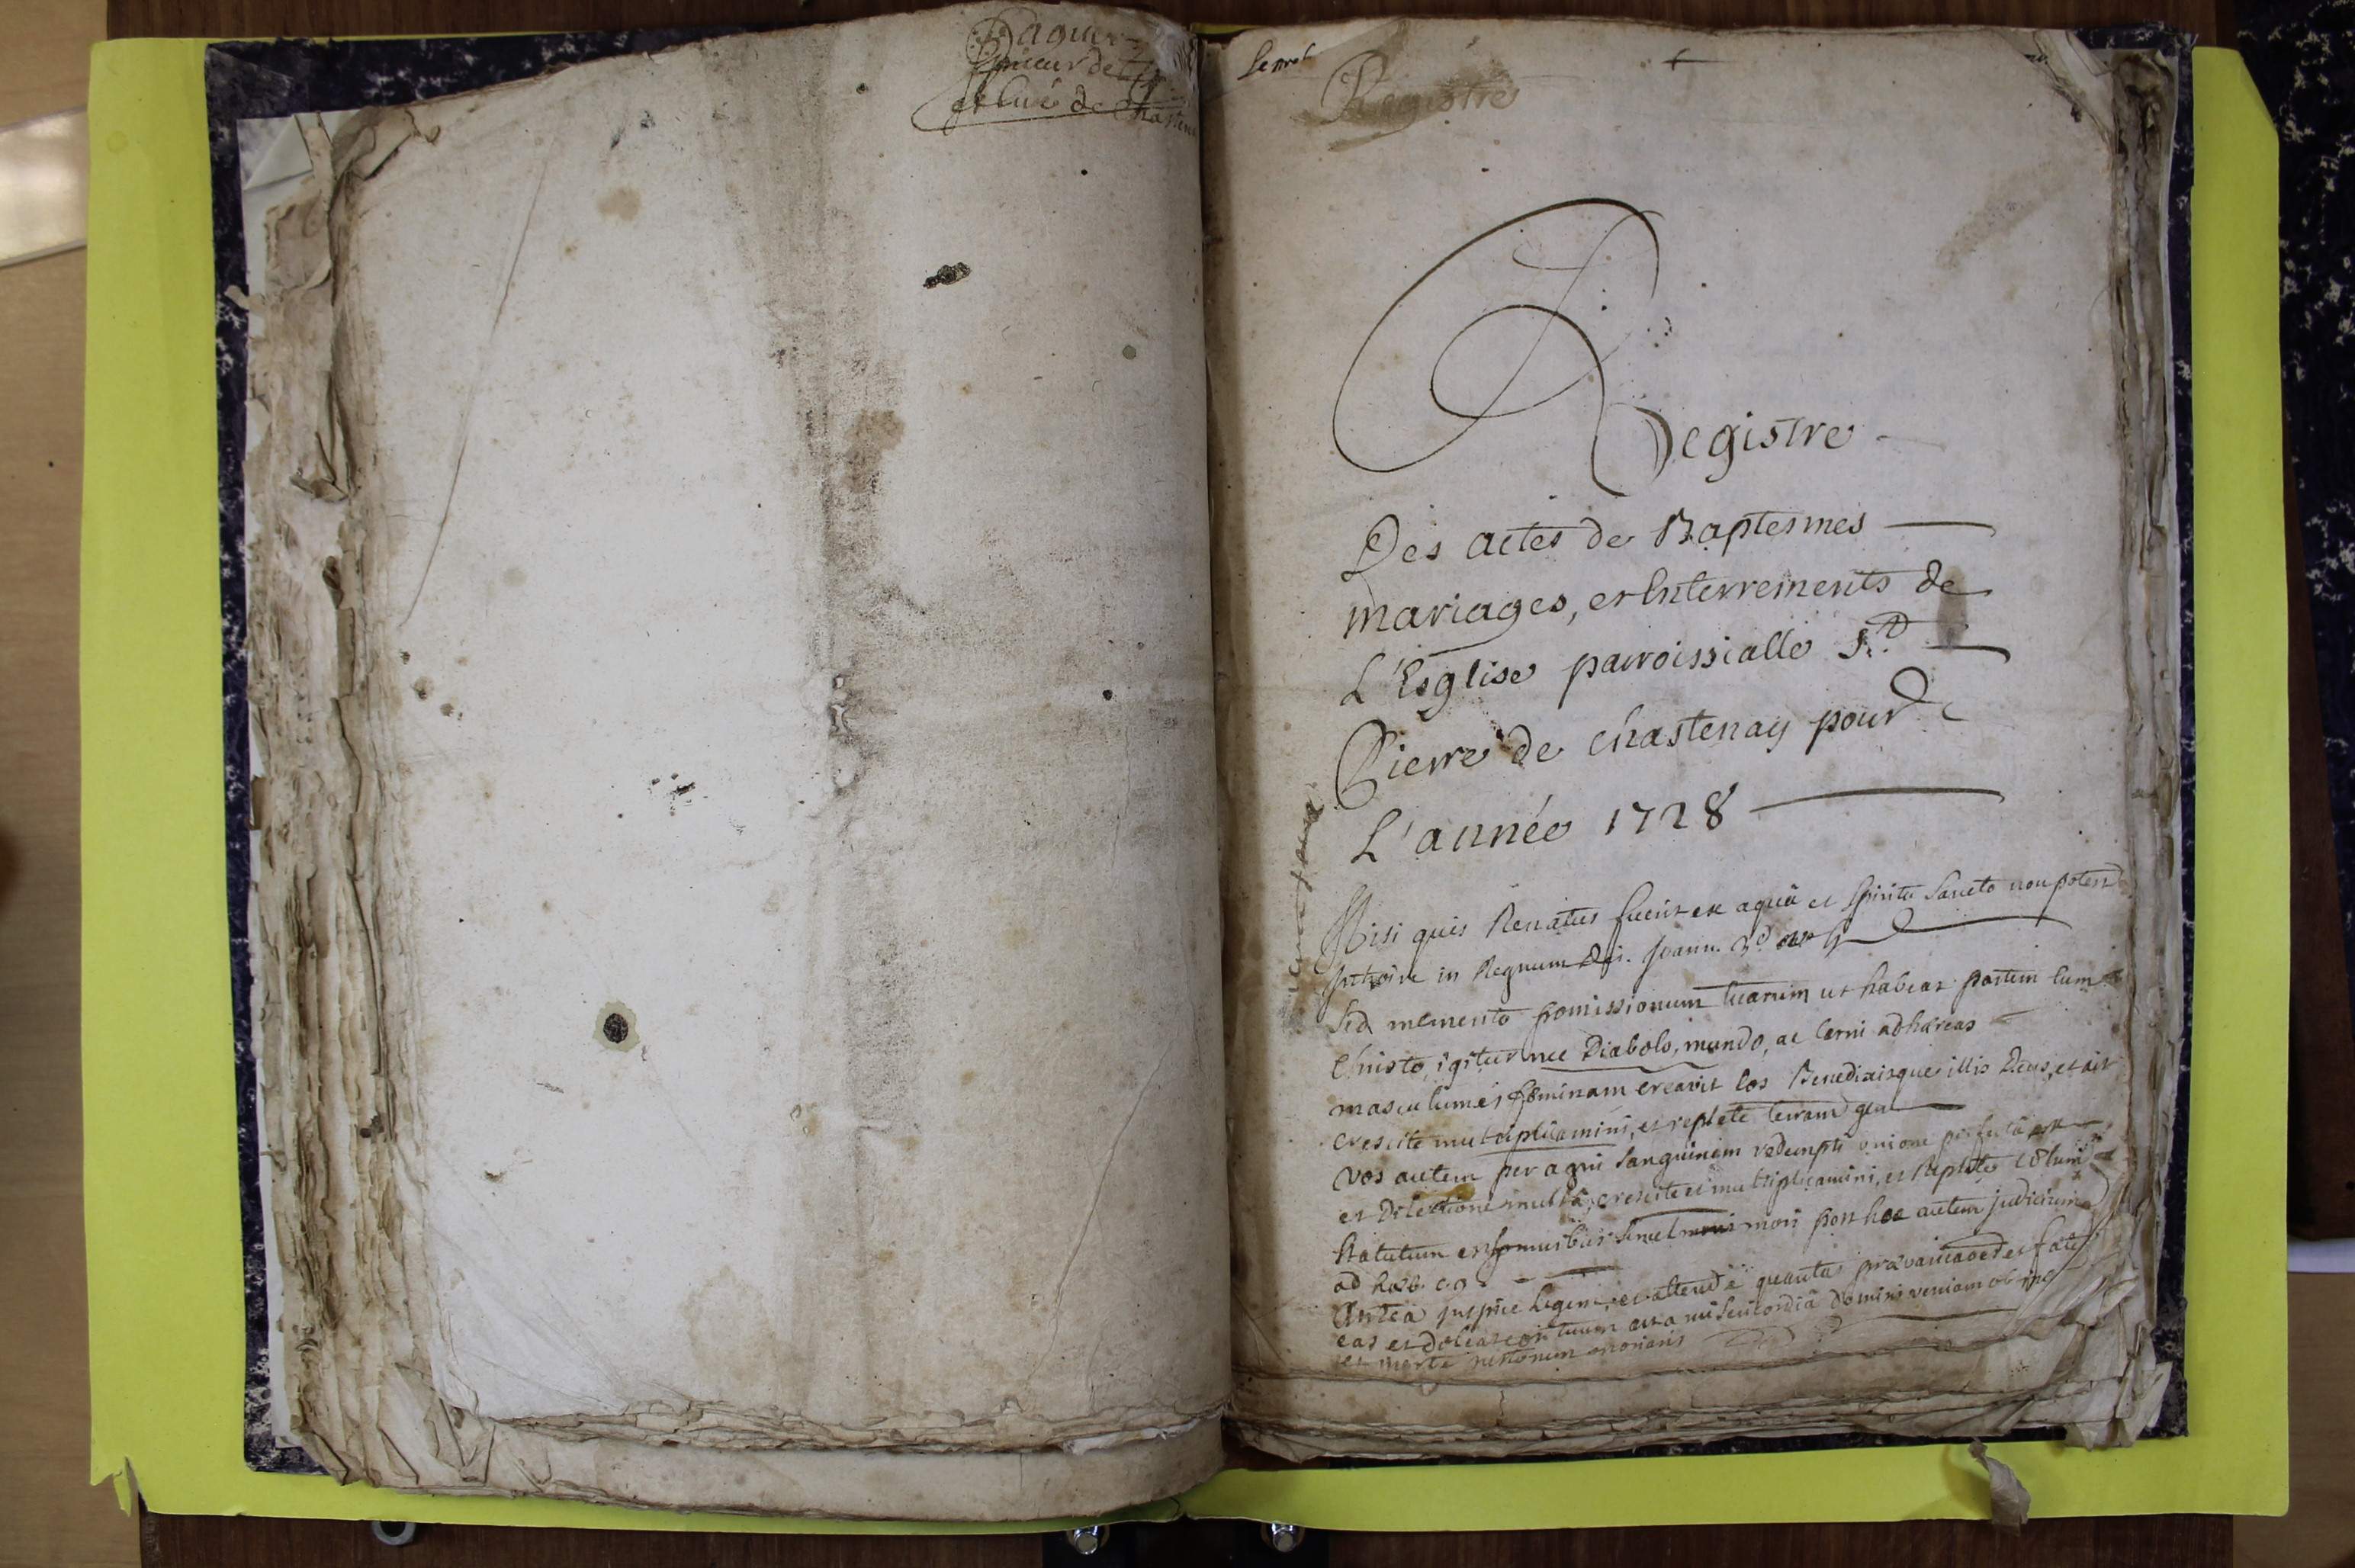 Paquier
Prieur de
et Curé de Chasten
Registre
Registre
Des actes de Baptesmes
mariages, et Enterrements de
L'Esglise parroissialle St
Pierre de Chastenay pour
L'année 1728
Nisi quis Renatus fuerit ex aquâ et Spiritu Sancto non potest
Introire in Regnum Dei. Joann. 3°
Sed memento promissionum tuarum ut habeas partem cum
Christo, igitur nec Diabolo, mundo, ac Carni adhæreas
masculum et fœminam creavit eos Benedixitque illis Deus, et ait
crescite multiplicamini, et replete terram gen
vos autem per agni sanguinem redempti unione perfectâ
et Dilectione multâ, crescite et multiplicamini, et Replete Cœlum
Statutum est hominibus semel mori post hoc autem judicium
ad haeb. c. 9.
Antea inspice legem, et attende quanta
eas et doleat cor tuum ut a misericordiâ Domini veniam
et morte justorum moriaris